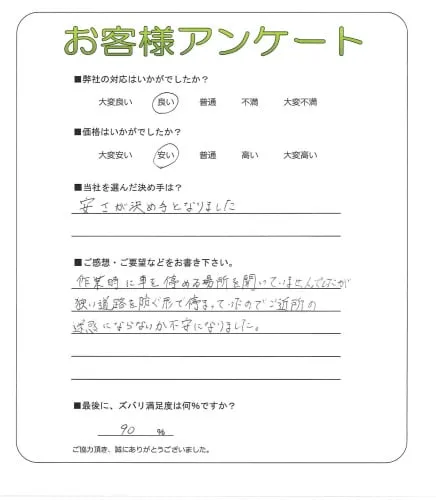 お客様アンケート
■弊社の対応はいかがでしたか?
大変良い 良い 普通 不満 大変不満
■価格はいかがでしたか?
大変安い 安い 普通 高い 大変高い
■当社を選んだ決め手は?
安さが決め手となりました
■ご感想・ご要望などをお書き下さい。
作業時に車を停める場所を聞いていませんでしたが
狭い道路を防ぐ形で停まっていたのでご近所の
迷惑にならないか不安になりました。
■最後に、ズバリ満足度は何%ですか?
90 %
ご協力頂き、誠にありがとうございました。